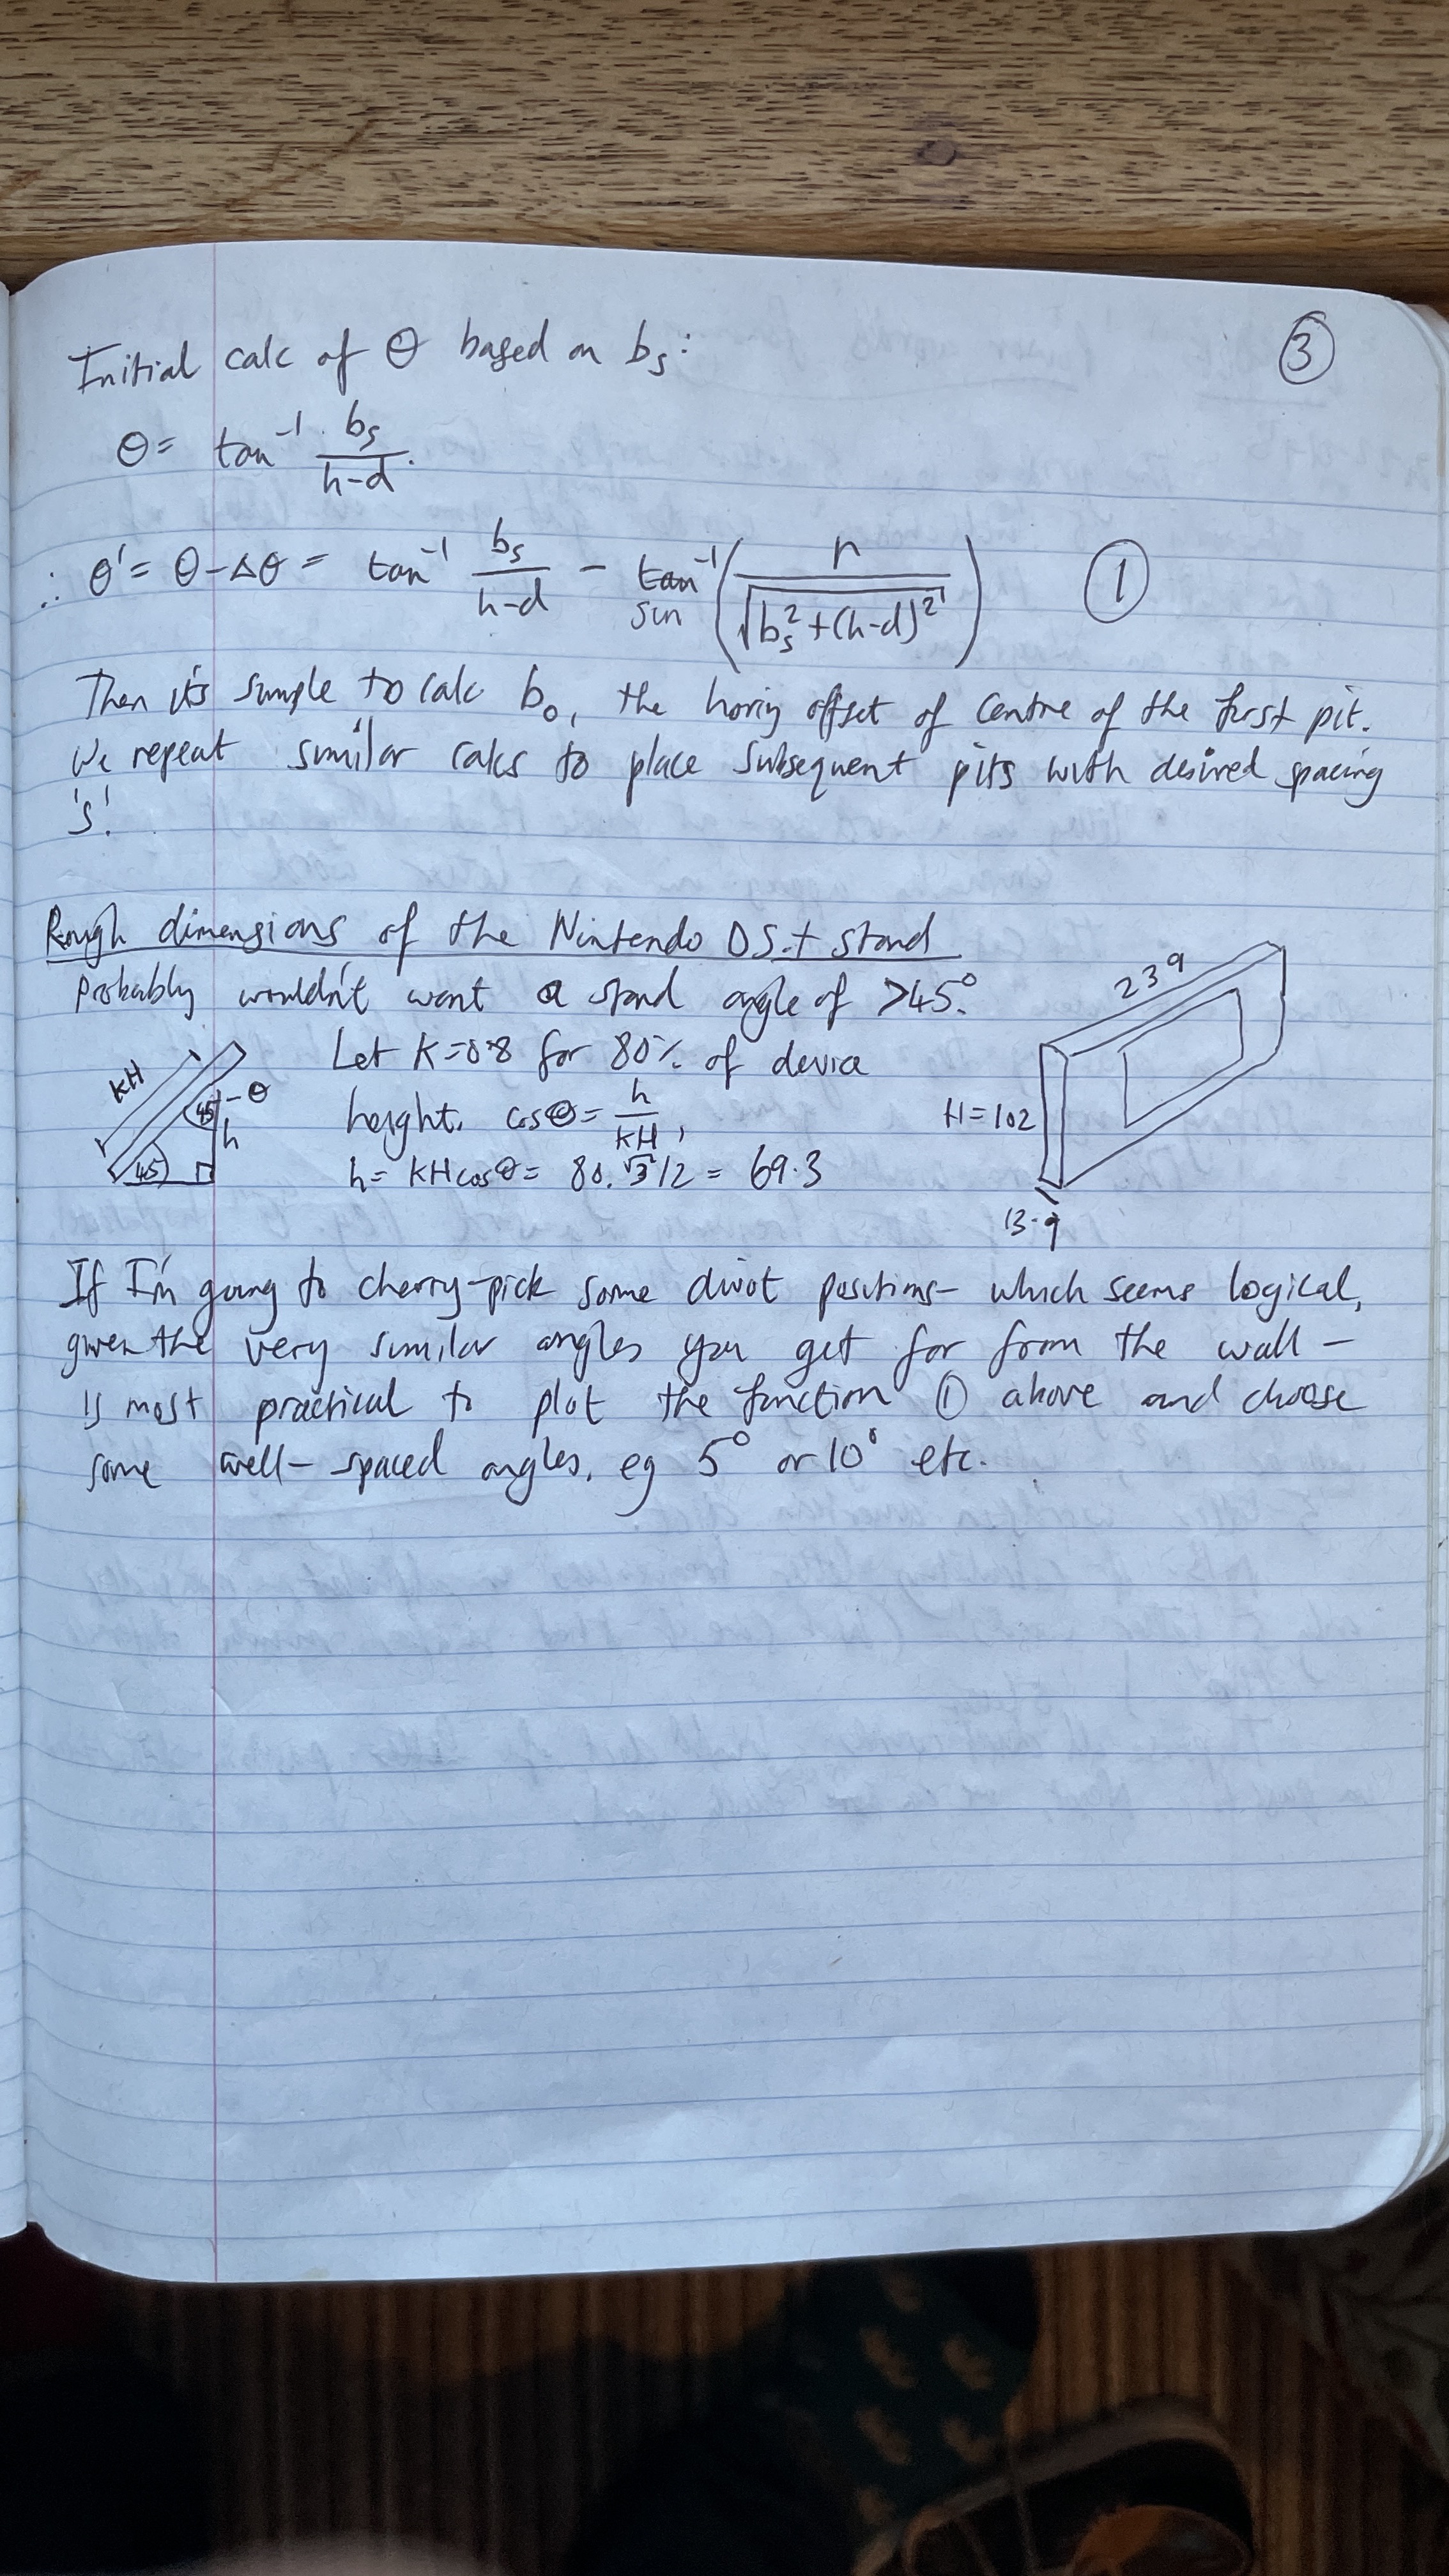 ③
Initial calc of θ based on b_s:
θ = tan⁻¹ b_s/(h-d).
∴ θ' = θ-Δθ = tan⁻¹ b_s/(h-d) - sin⁻¹(r/√(b_s²+(h-d)²)) ①
Then it's simple to calc b₀, the horiz offset of centre of the first pit.
We repeat similar calcs to place subsequent pits with desired spacing
's'.
Rough dimensions of the Nintendo DS + stand
Probably wouldn't want a stand angle of >45°.
Let K=0.8 for 80% of device
height. cosθ = h/KH,
h = KHcosθ = 80.√3/2 = 69.3
KH
45
θ
h
45
239
H=102
13.9
If I'm going to cherry-pick some divot positions - which seems logical,
given the very similar angles you get far from the wall -
is most practical to plot the function ① above and choose
some well-spaced angles, eg 5° or 10° etc.